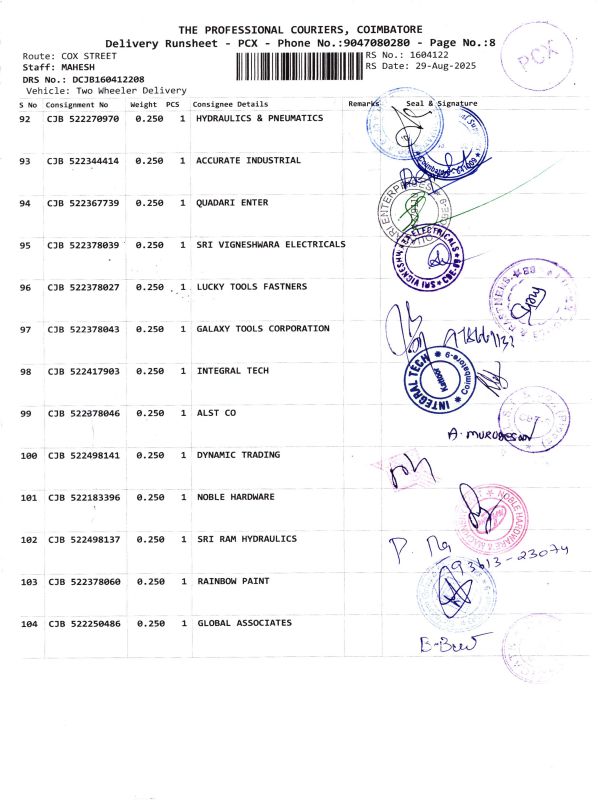 THE PROFESSIONAL COURIERS, COIMBATORE
Delivery Runsheet - PCX - Phone No.:9047080280 - Page No.:8
Route: COX STREET
RS No.: 1604122
Staff: MAHESH
RS Date: 29-Aug-2025
DRS No.: DCJB160412208
Vehicle: Two Wheeler Delivery
PCX
S No Consignment No Weight PCS Consignee Details Remarks Seal & Signature
92 CJB 522270970 0.250 1 HYDRAULICS & PNEUMATICS
93 CJB 522344414 0.250 1 ACCURATE INDUSTRIAL
94 CJB 522367739 0.250 1 QUADARI ENTER
95 CJB 522378039 0.250 1 SRI VIGNESHWARA ELECTRICALS
96 CJB 522378027 0.250 1 LUCKY TOOLS FASTNERS
97 CJB 522378043 0.250 1 GALAXY TOOLS CORPORATION
98 CJB 522417903 0.250 1 INTEGRAL TECH
INTEGRAL TECH
Coimbatore-9
Kattoor
99 CJB 522378046 0.250 1 ALST CO
A. MURUGESAN
100 CJB 522498141 0.250 1 DYNAMIC TRADING
101 CJB 522183396 0.250 1 NOBLE HARDWARE
NOBLE HARDWARE &
102 CJB 522498137 0.250 1 SRI RAM HYDRAULICS
93613-23074
103 CJB 522378060 0.250 1 RAINBOW PAINT
104 CJB 522250486 0.250 1 GLOBAL ASSOCIATES